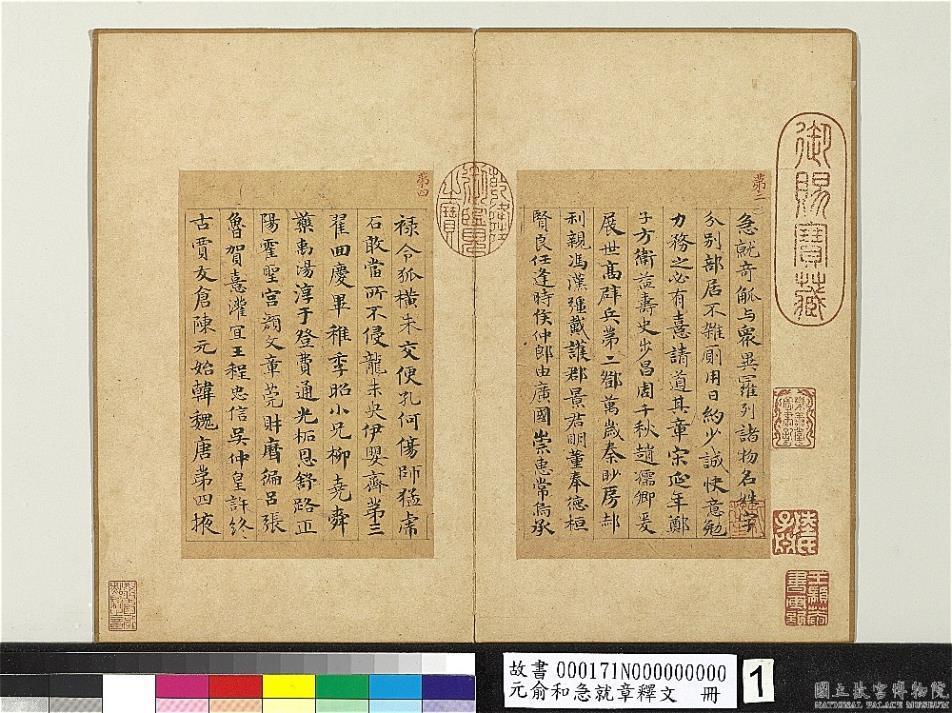 御賜寶藏
第三
急就奇觚与衆異羅列諸物名姓字
分別部居不雜厠用日約少誠快意勉
力務之必有憙請道其章宋延年鄭
子方衛益壽史步昌周千秋趙孺卿爰
展世高辟兵第二鄧萬歲秦眇房郝
利親馮漢彊戴護郡景君明董奉德桓
賢良任逢時侯仲郎由廣國崇惠常烏承
第四
祿令狐橫朱交便孔何傷師猛虎
石敢當所不侵龍未央伊嬰齊第三
翟回慶畢稚季昭小兄柳堯舜
藥禹湯淳于登費通光柘恩舒路正
陽霍聖宮顏文章莞財曆編呂張
魯賀憙灌宜王程忠信吳仲皇許終
古賈友倉陳元始韓魏唐第四掖
故書 000171N000000000
元俞和急就章釋文 冊
1
國立故宮博物院
NATIONAL PALACE MUSEUM